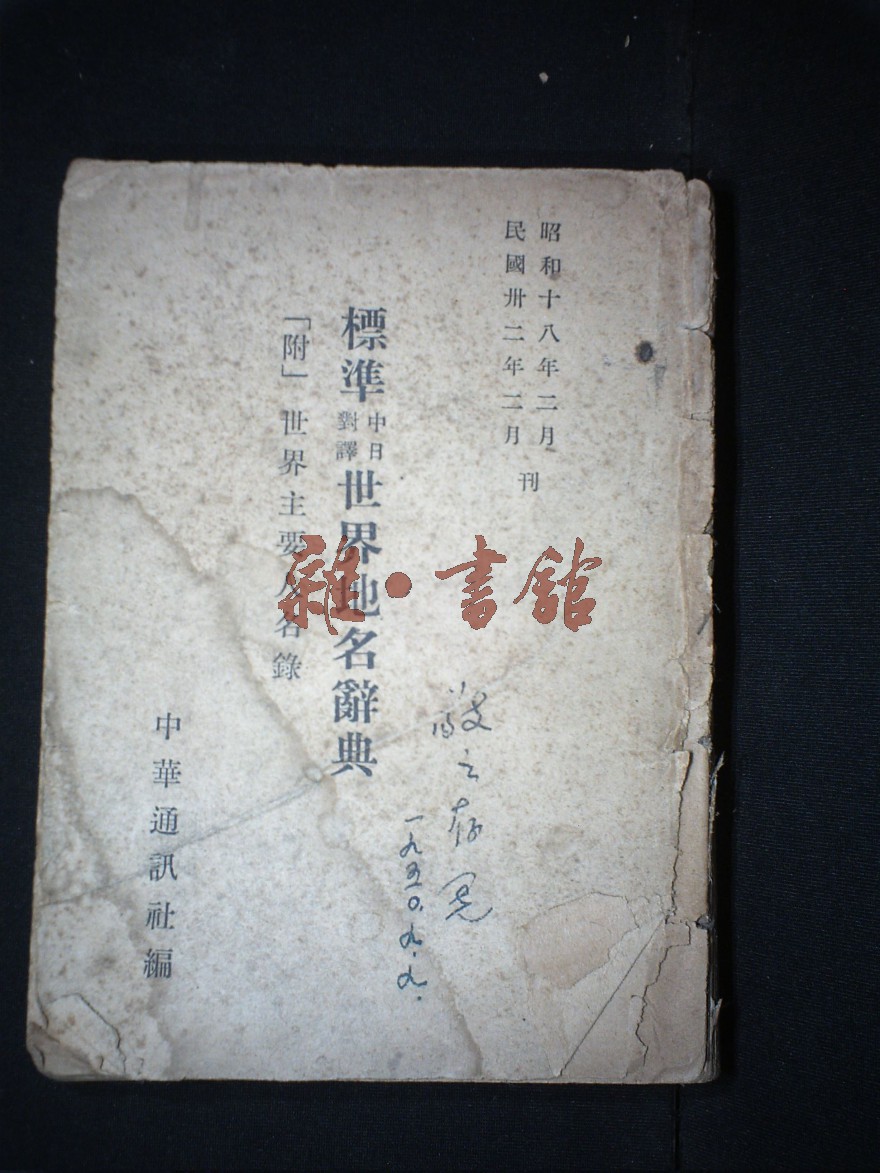 昭和十八年二月
民國卅二年二月
刊
標準中日對譯世界地名辭典
「附」世界主要人名錄
中華通訊社編
敬之存览
一九五〇.九.九.
雜·書館